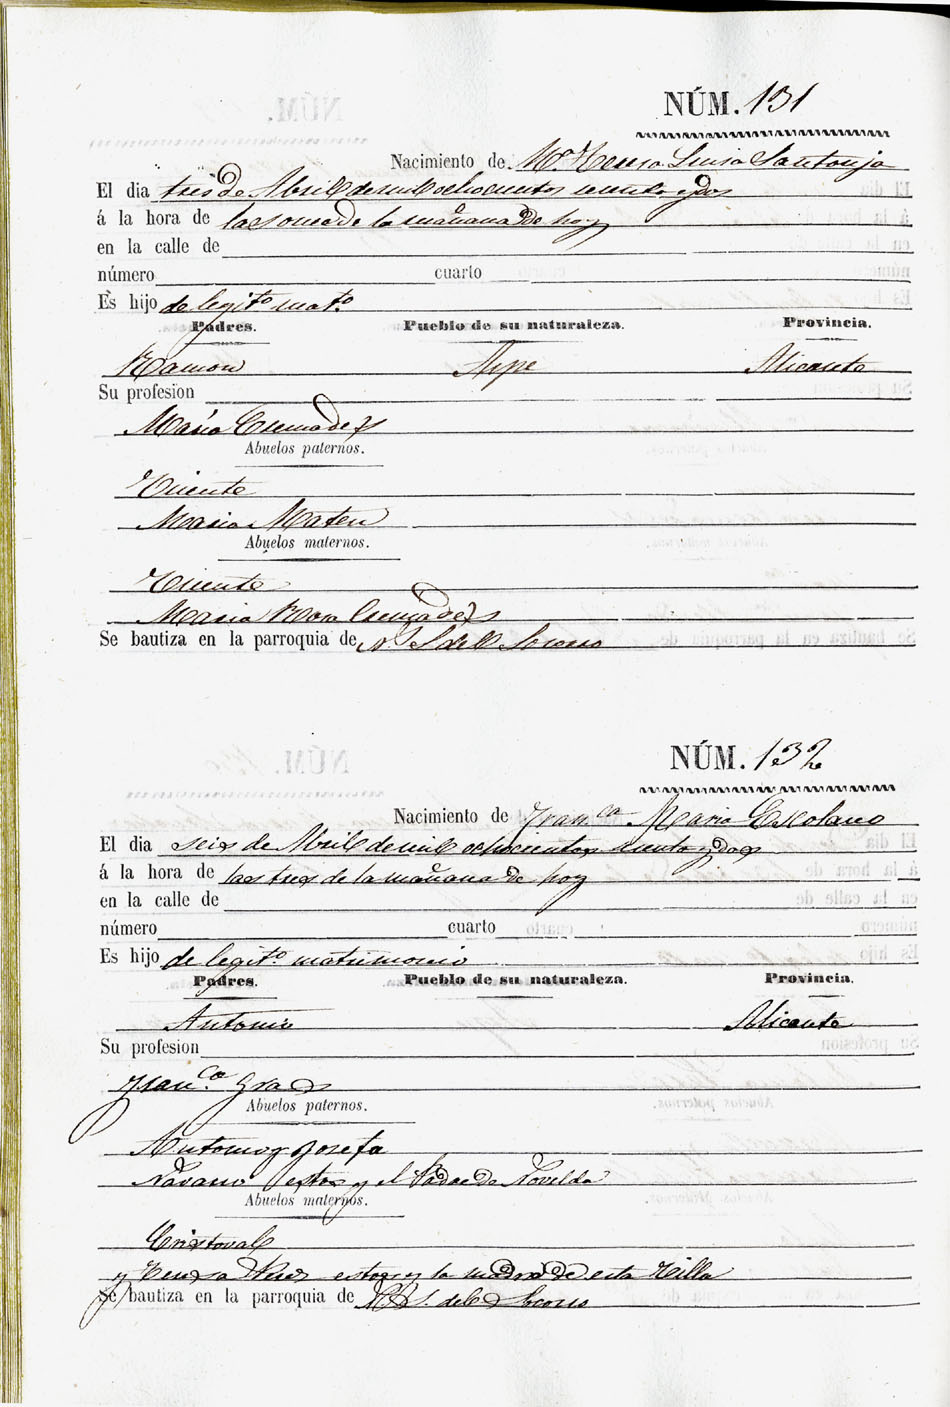 NÚM. 131
Nacimiento de Mª Teresa Luisa Santonja
El dia tres de Abril de mil ochocientos y dos
á la hora de las once de la mañana de hoy
en la calle de
número cuarto
Es hijo de legitº matº
Padres. Pueblo de su naturaleza. Provincia.
Ramon Aspe Alicante
Su profesion
Maria Cremades
Abuelos paternos.
Vicente
Maria Mateu
Abuelos maternos.
Vicente
Maria Cremades
Se bautiza en la parroquia de N. S. del Socorro
NÚM. 132
Nacimiento de Franca Maria Escolano
El dia seis de Abril de mil ochocientos y dos
á la hora de las tres de la mañana de hoy
en la calle de
número cuarto
Es hijo de legitº matrimonio
Padres. Pueblo de su naturaleza. Provincia.
Antonio Alicante
Su profesion
Franca Gras
Abuelos paternos.
Antonio y Josefa
Navarro estos y el Padre de Novelda
Abuelos maternos.
Cristoval
y Teresa estos y la madre de esta Villa
Se bautiza en la parroquia de N. S. del Socorro